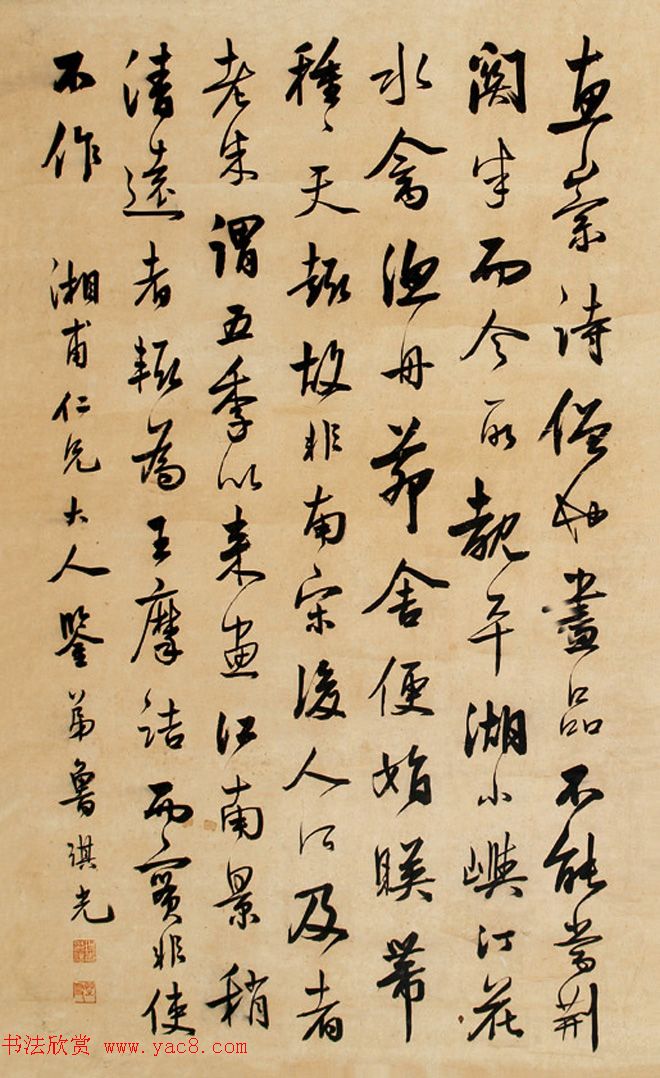 惠崇詩僧也畫品不能當荊
關半而今所覩平湖小嶼汀花
水禽漁舟茆舍便娟暎帶
種〻天趣故非南宋後人所及者
老米謂五季以來畫江南景稍
清遠者輒為王摩詰而實非使
不作 湘甫仁兄大人鑒弟魯琪光
书法欣赏 www.yac8.com